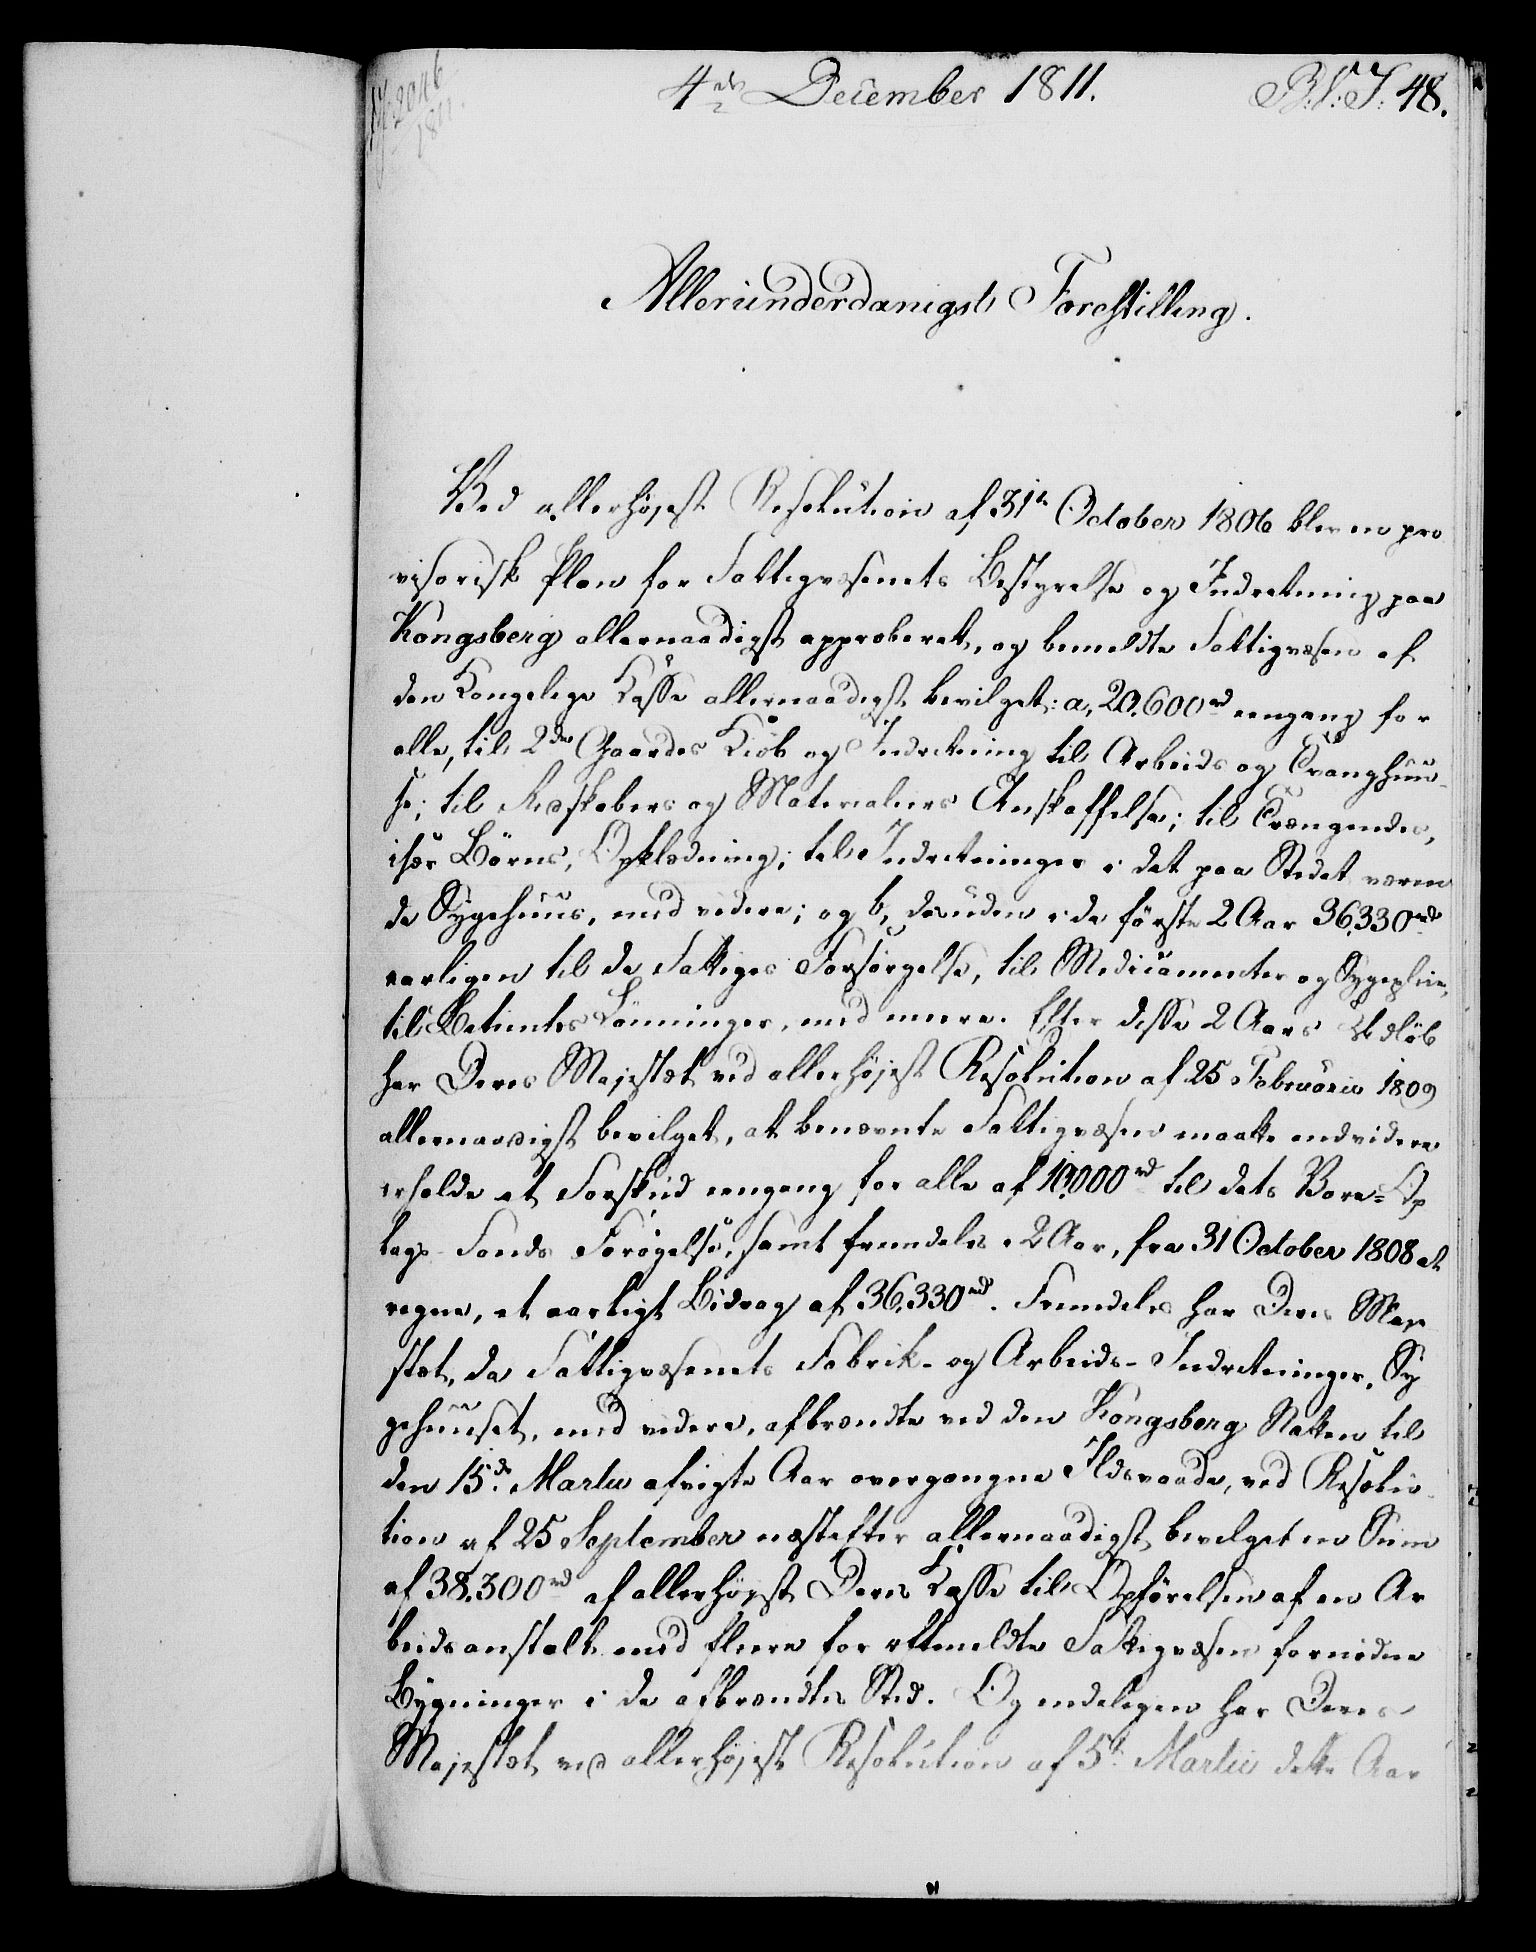 2046
1811.
4de December 1811.
B:V:J: 48.
Allerunderdanigst Forestilling.
Ved allerhøjest Resolution af 31te October 1806 blev en pro
visorisk Plan for Fattigvæsenets Bestyrelse og Indretning paa
Kongsberg allernaadigst approberet, og bemeldte Fattigvæsen af
den Kongelige Casse allernaadigst bevilget: a, 20,600 rd eengang for
alle, til 2de Gaardes Kiöb og Indretning til Arbeids og Tvanghuu-
se; til Redskabers og Materialiers Anskaffelse; til Trængendes,
især Börns, Opklædning; til Indretninger i det paa Stedet væren
de Sygehuus, med videre; og b, desuden i de förste 2 Aar 36,330 rd
aarligen til de Fattiges Forsörgelse, til Medicamenter og Sygepleie,
til Betientes Lönninger, med meere. Efter disse 2 Aars Udlöb
har Deres Majestæt ved allerhöjest Resolution af 25 Februarii 1809
allernaadigst bevilget, at benævnte Fattigvæsen maatte endvidere
erholde et Forskud eengang for alle af 10,000 rd til dets Vare-Op
lags Fonds Forögelse, samt fremdeles i 2 Aar, fra 31 October 1808 at
regne, et aarligt Bidrag af 36,330 rd. Fremdeles har Deres Maje
stæt, da Fattigvæsenets Fabrik- og Arbeids-Indretninger, Sy
gehuuset, med videre, afbrændte ved den Kongsberg Natten til
den 15de Martii afvigte Aar overgangne Ildsvaade, ved Resolu-
tion af 25 September næstefter allernaadigst bevilget en Sum
af 38,300 rd af allerhöjst Deres Casse til Opförelsen af en Ar
beidsanstalt med fleere for oftmeldte Fattigvæsen fornödne
Bygninger i de afbrændtes Sted. Og endeligen har Deres
Majestæt ved allerhöjeste Resolution af 5te Martii dette Aar